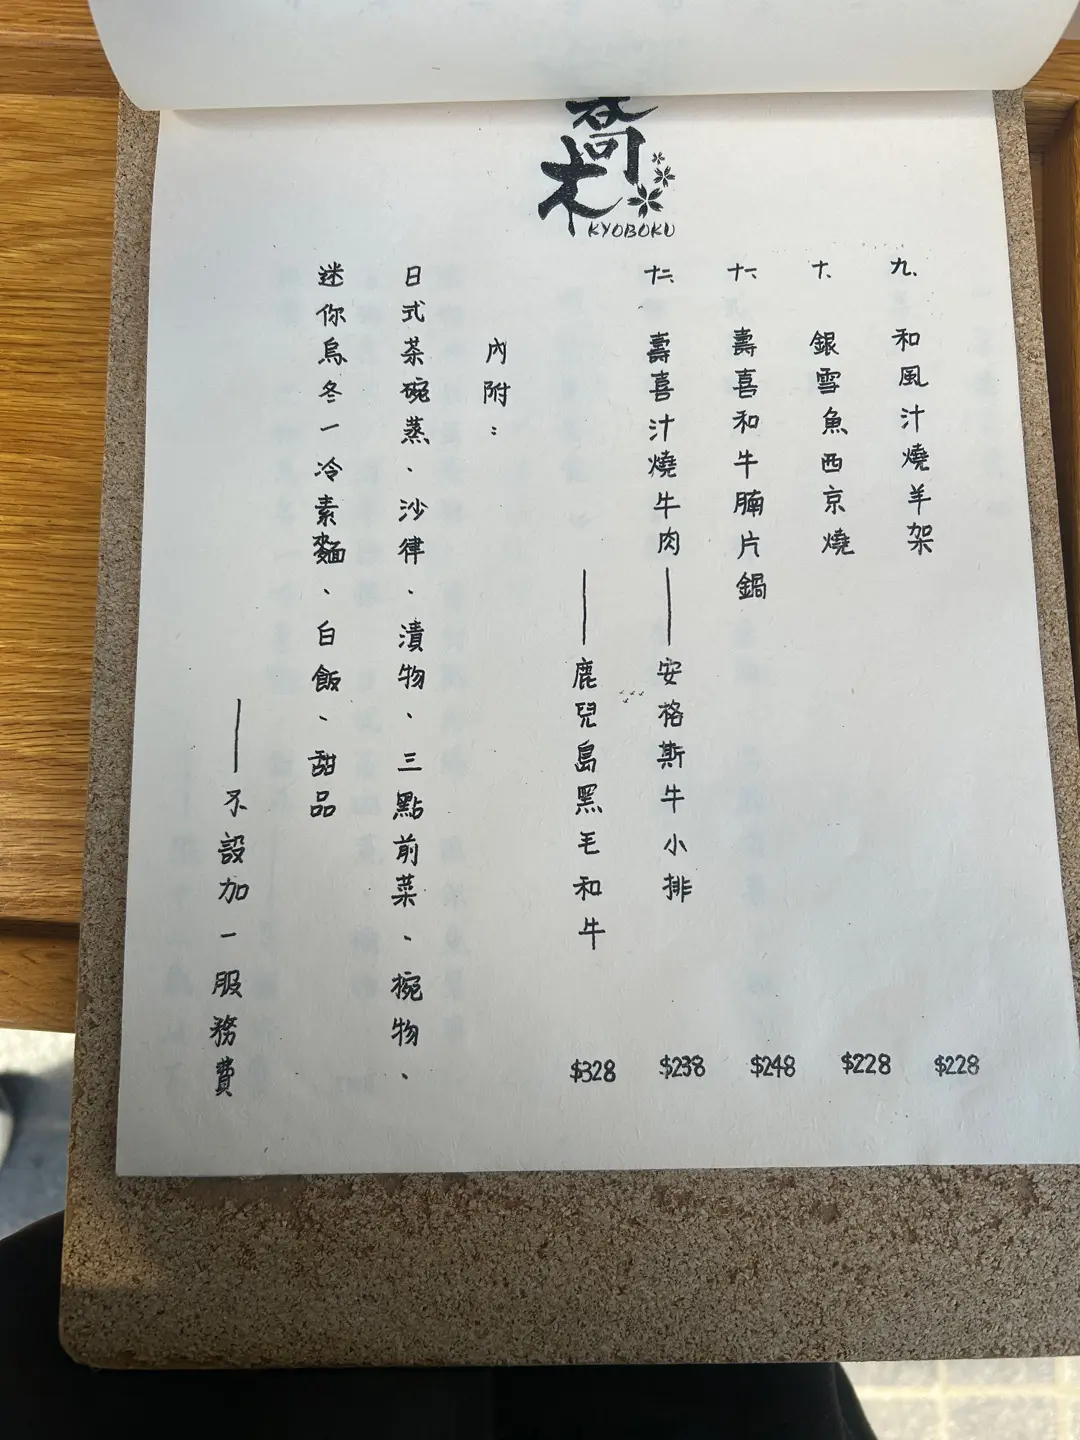 喬木
KYOBOKU
九、和風汁燒羊架 $228
十、銀雪魚西京燒 $228
十一、壽喜和牛腩片鍋 $248
十二、壽喜汁燒牛肉——安格斯牛小排 $238
——鹿兒島黑毛和牛 $328
內附：
日式茶碗蒸、沙律、漬物、三點前菜、椀物、
迷你烏冬一冷素麵、白飯、甜品
——不設加一服務費